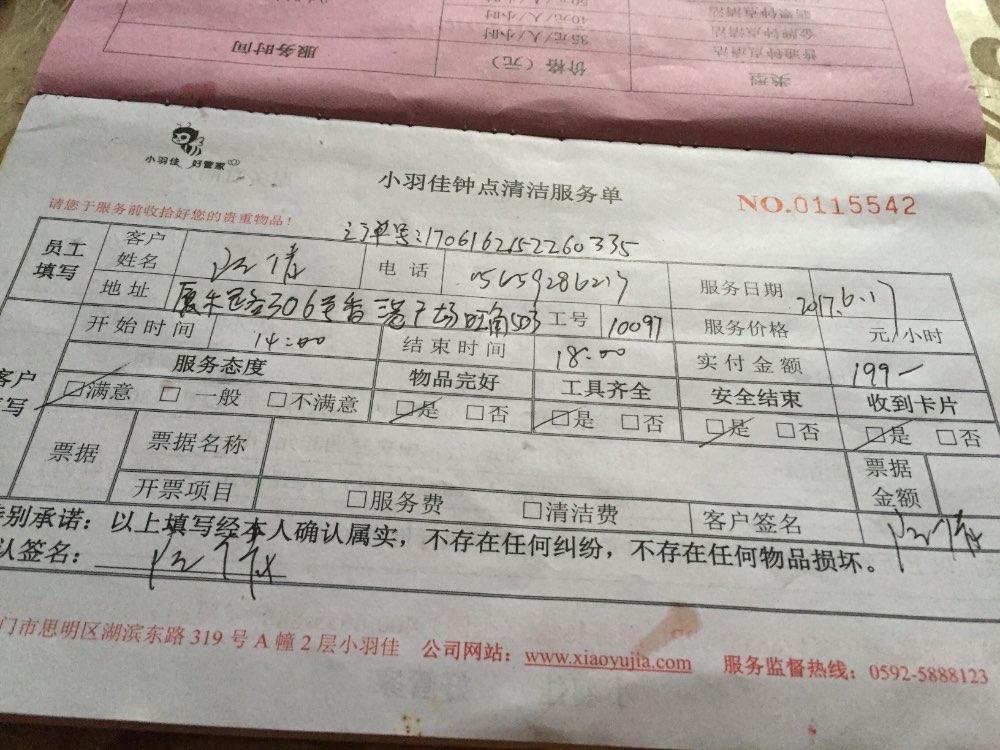 类型 价格（元） 服务时间
普通钟点清洁 35元/人/小时
金牌钟点清洁 40元/人/小时
小羽佳 好管家
小羽佳钟点清洁服务单
NO.0115542
请您于服务前收拾好您的贵重物品！
订单号:1706162152260335
员工填写 客户姓名 电话 服务日期 2017.6.17
地址 306号香港广场旺角503 工号 10097 服务价格 元/小时
开始时间 14:00 结束时间 18:00 实付金额 199-
客户 写 服务态度 物品完好 工具齐全 安全结束 收到卡片
□满意 □一般 □不满意 □是 □否 □是 □否 □是 □否 □是 □否
票据 票据名称 票据金额
开票项目 □服务费 □清洁费 客户签名
特别承诺：以上填写经本人确认属实，不存在任何纠纷，不存在任何物品损坏。
认签名：
门市思明区湖滨东路 319 号 A 幢 2 层小羽佳 公司网站：www.xiaoyujia.com 服务监督热线：0592-5888123